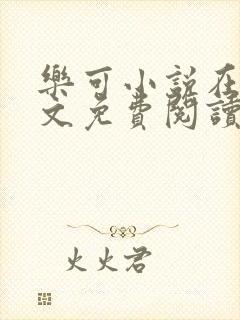 樂可小說在
文免費閱讀
火火君